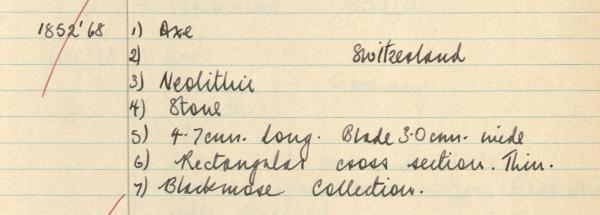 1852'68 1) Axe
2) Switzerland
3) Neolithic
4) Stone
5) 4.7cms. Long. Blade 3.0cms. wide
6) Rectangular cross section. Thin.
7) Blackmore Collection.